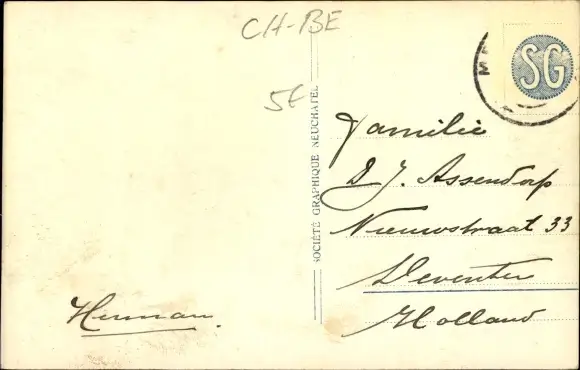 CH-BE
5€
SG
SOCIÉTÉ GRAPHIQUE NEUCHATEL
Familie
D J. Assendorp
Nieuwstraat 33
Deventer
Holland
Herman